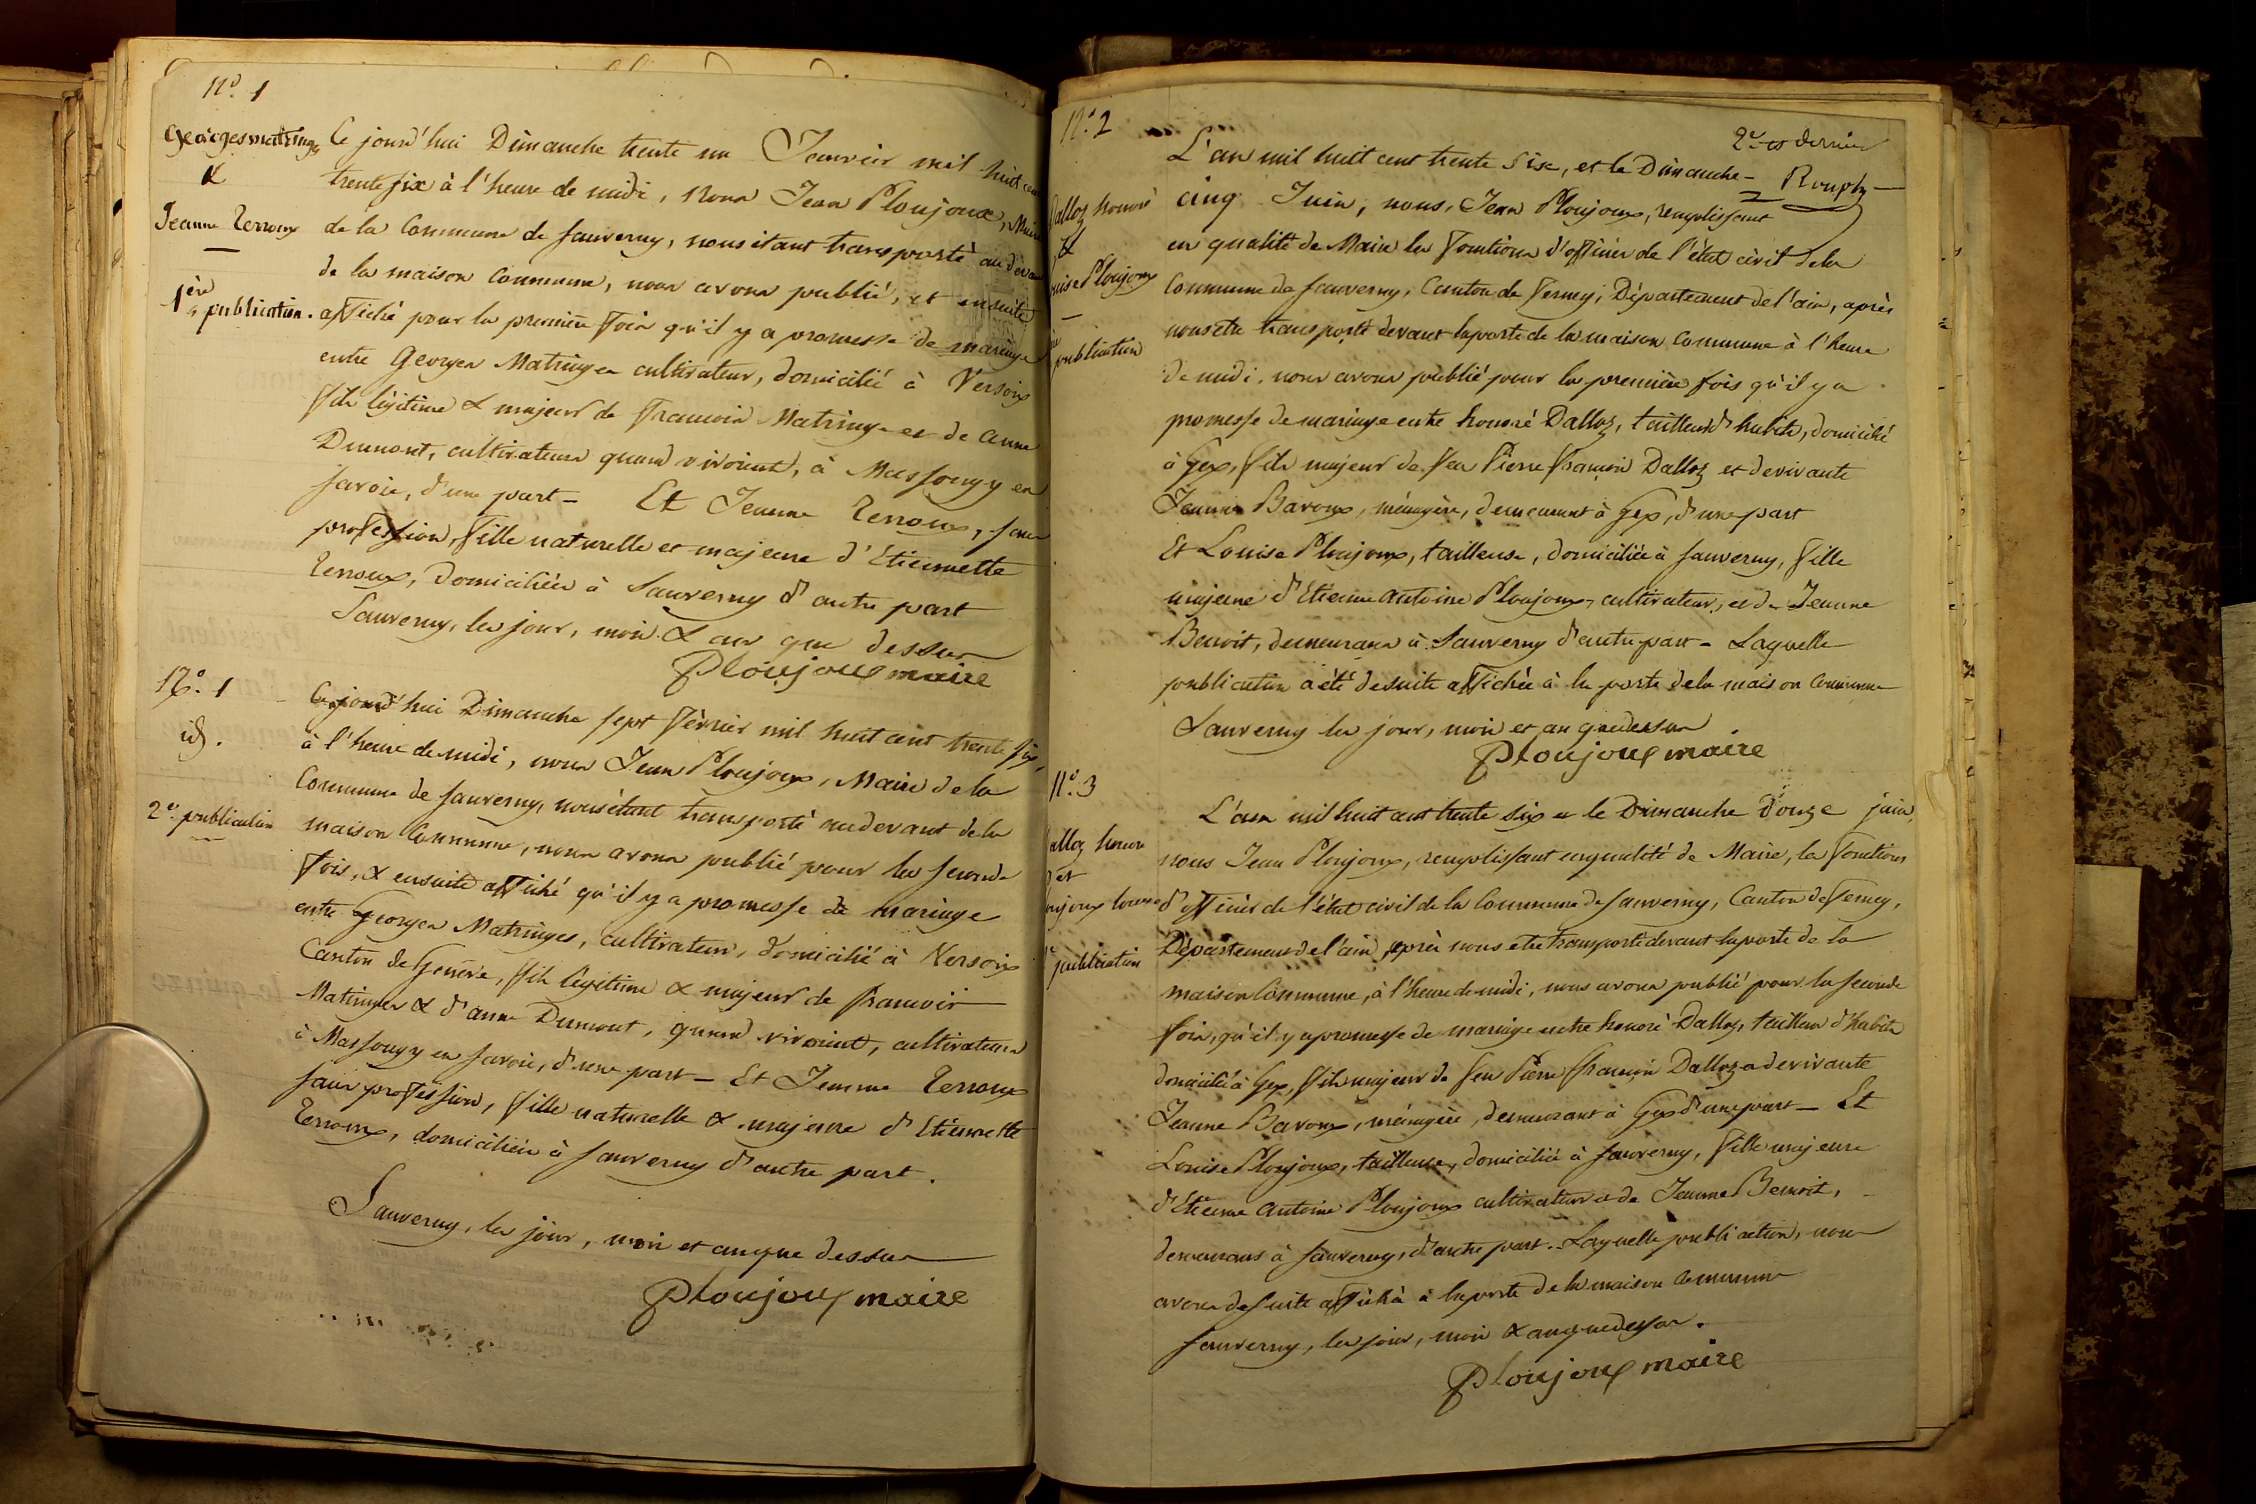 N.o 1
Georges Matringes
&
Jeanne Terroux
1ère publication.
Ce jourd'hui Dimanche trente un Janvier mil huit cent
trente six à l'heure de midi, Nous Jean Ploujoux, Maire
de la Commune de Sauverny, nous étant transporté au devant
de la maison Commune, nous avons publié, et ensuite
affiché pour la première fois qu'il y a promesse de mariage
entre Georges Matringes cultivateur, domicilié à Versoix
fils légitime & majeur de François Matringe et de Anne
Dumont, cultivateurs quand vivoient, à Massongy en
Savoie, d'une part – Et Jeanne Terroux, sans
profession, fille naturelle et majeure d'Etiennette
Terroux, Domiciliée à Sauverny d'autre part
Sauverny, les jour, mois & an que dessus
Ploujoux maire
N.o 1
id.
2e publication
Ce jourd'hui Dimanche sept Février mil huit cent trente six,
à l'heure de midi, nous Jean Ploujoux, Maire de la
Commune de Sauverny, nous étant transporté au devant de la
maison Commune, nous avons publié pour la seconde
fois, & ensuite affiché qu'il y a promesse de mariage
entre Georges Matringes, cultivateur, domicilié à Versoix
Canton de Genève, fils légitime & majeur de François
Matringes & d'anne Dumont, quand vivoient, cultivateurs
à Massongy en Savoie, d'une part – Et Jeanne Terroux
sans profession, fille naturelle & majeure d'Etiennette
Terroux, domiciliée à Sauverny d'autre part.
Sauverny, les jour, mois et an que dessus
Ploujoux maire
2e et dernier
Rouph
N.o 2
Dalloz honoré
&
Louise Ploujoux
publication
L'an mil huit cent trente Six, et le Dimanche –
cinq Juin, nous, Jean Ploujoux, remplissant
en qualité de Maire les fonctions d'officier de l'état civil de la
Commune de Sauverny, Canton de Ferney, Département de l'ain, après
nous être transporté devant la porte de la maison Commune à l'heure
de midi, nous avons publié pour la première fois qu'il y a
promesse de mariage entre honoré Dalloz, tailleur d'habits, domicilié
à Gex, fils majeur de feu Pierre François Dalloz et de vivante
Jeanne Baroux, ménagère, demeurant à Gex, d'une part
Et Louise Ploujoux, tailleuse, domiciliée à Sauverny, fille
majeure d'Etienne Antoine Ploujoux, cultivateur, et de Jeanne
Benoit, demeurans à Sauverny d'autre part – Laquelle
publication a été de suite affichée à la porte de la maison Commune
Sauverny les jour, mois et an que dessus
Ploujoux maire
N.o 3
Dalloz honoré
et
Ploujoux Louise
publication
L'an mil huit cent trente six et le Dimanche Douze juin,
nous Jean Ploujoux, remplissant en qualité de Maire, les fonctions
d'officier de l'état civil de la Commune de Sauverny, Canton de Ferney,
Département de l'ain, après nous être transporté devant la porte de la
maison Commune, à l'heure de midi, nous avons publié pour la seconde
fois, qu'il y a promesse de mariage entre honoré Dalloz, tailleur d'habits
domicilié à Gex, fils majeur de feu Pierre François Dalloz et de vivante
Jeanne Baroux, ménagère, demeurant à Gex d'une part – Et
Louise Ploujoux, tailleuse, domiciliée à Sauverny, fille majeure
d'Etienne Antoine Ploujoux cultivateur et de Jeanne Benoit,
demeurans à Sauverny, d'autre part. Laquelle publication, nous
avons de suite affiché à la porte de la maison Commune
Sauverny, les jour, mois & an que dessus.
Ploujoux maire